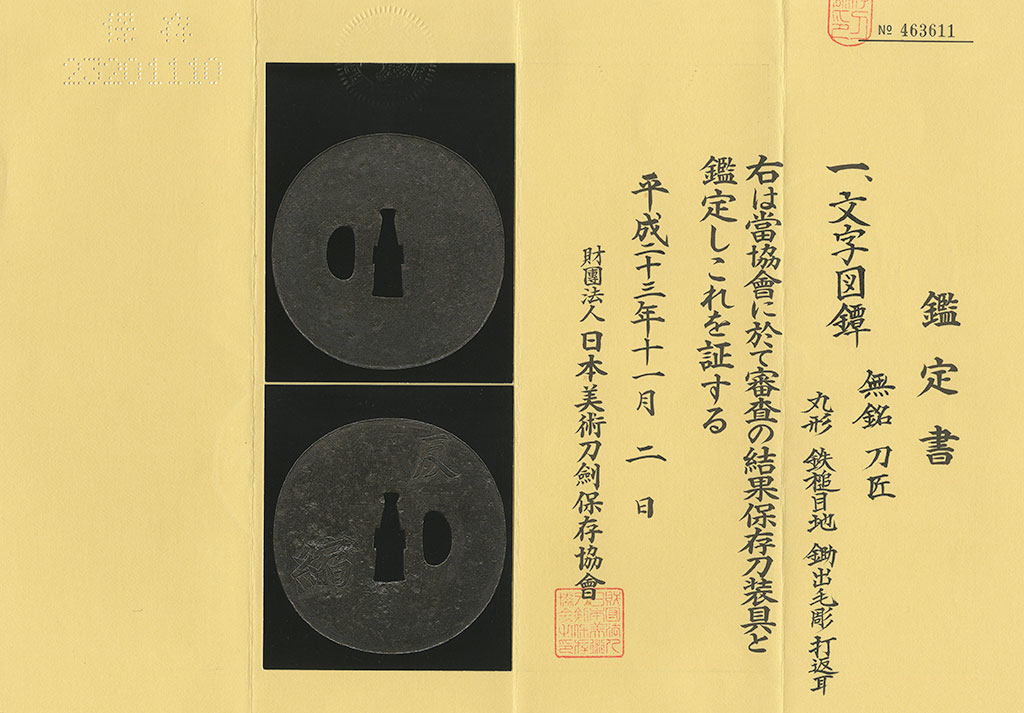 № 463611
鑑定書
一、文字図鐔
無銘 刀匠
丸形 鉄槌目地 鋤出毛彫 打返耳
右は當協會に於て審査の結果保存刀装具と
鑑定しこれを証する
平成二十三年十一月 二 日
財團法人 日本美術刀劍保存協會
保存
23201110